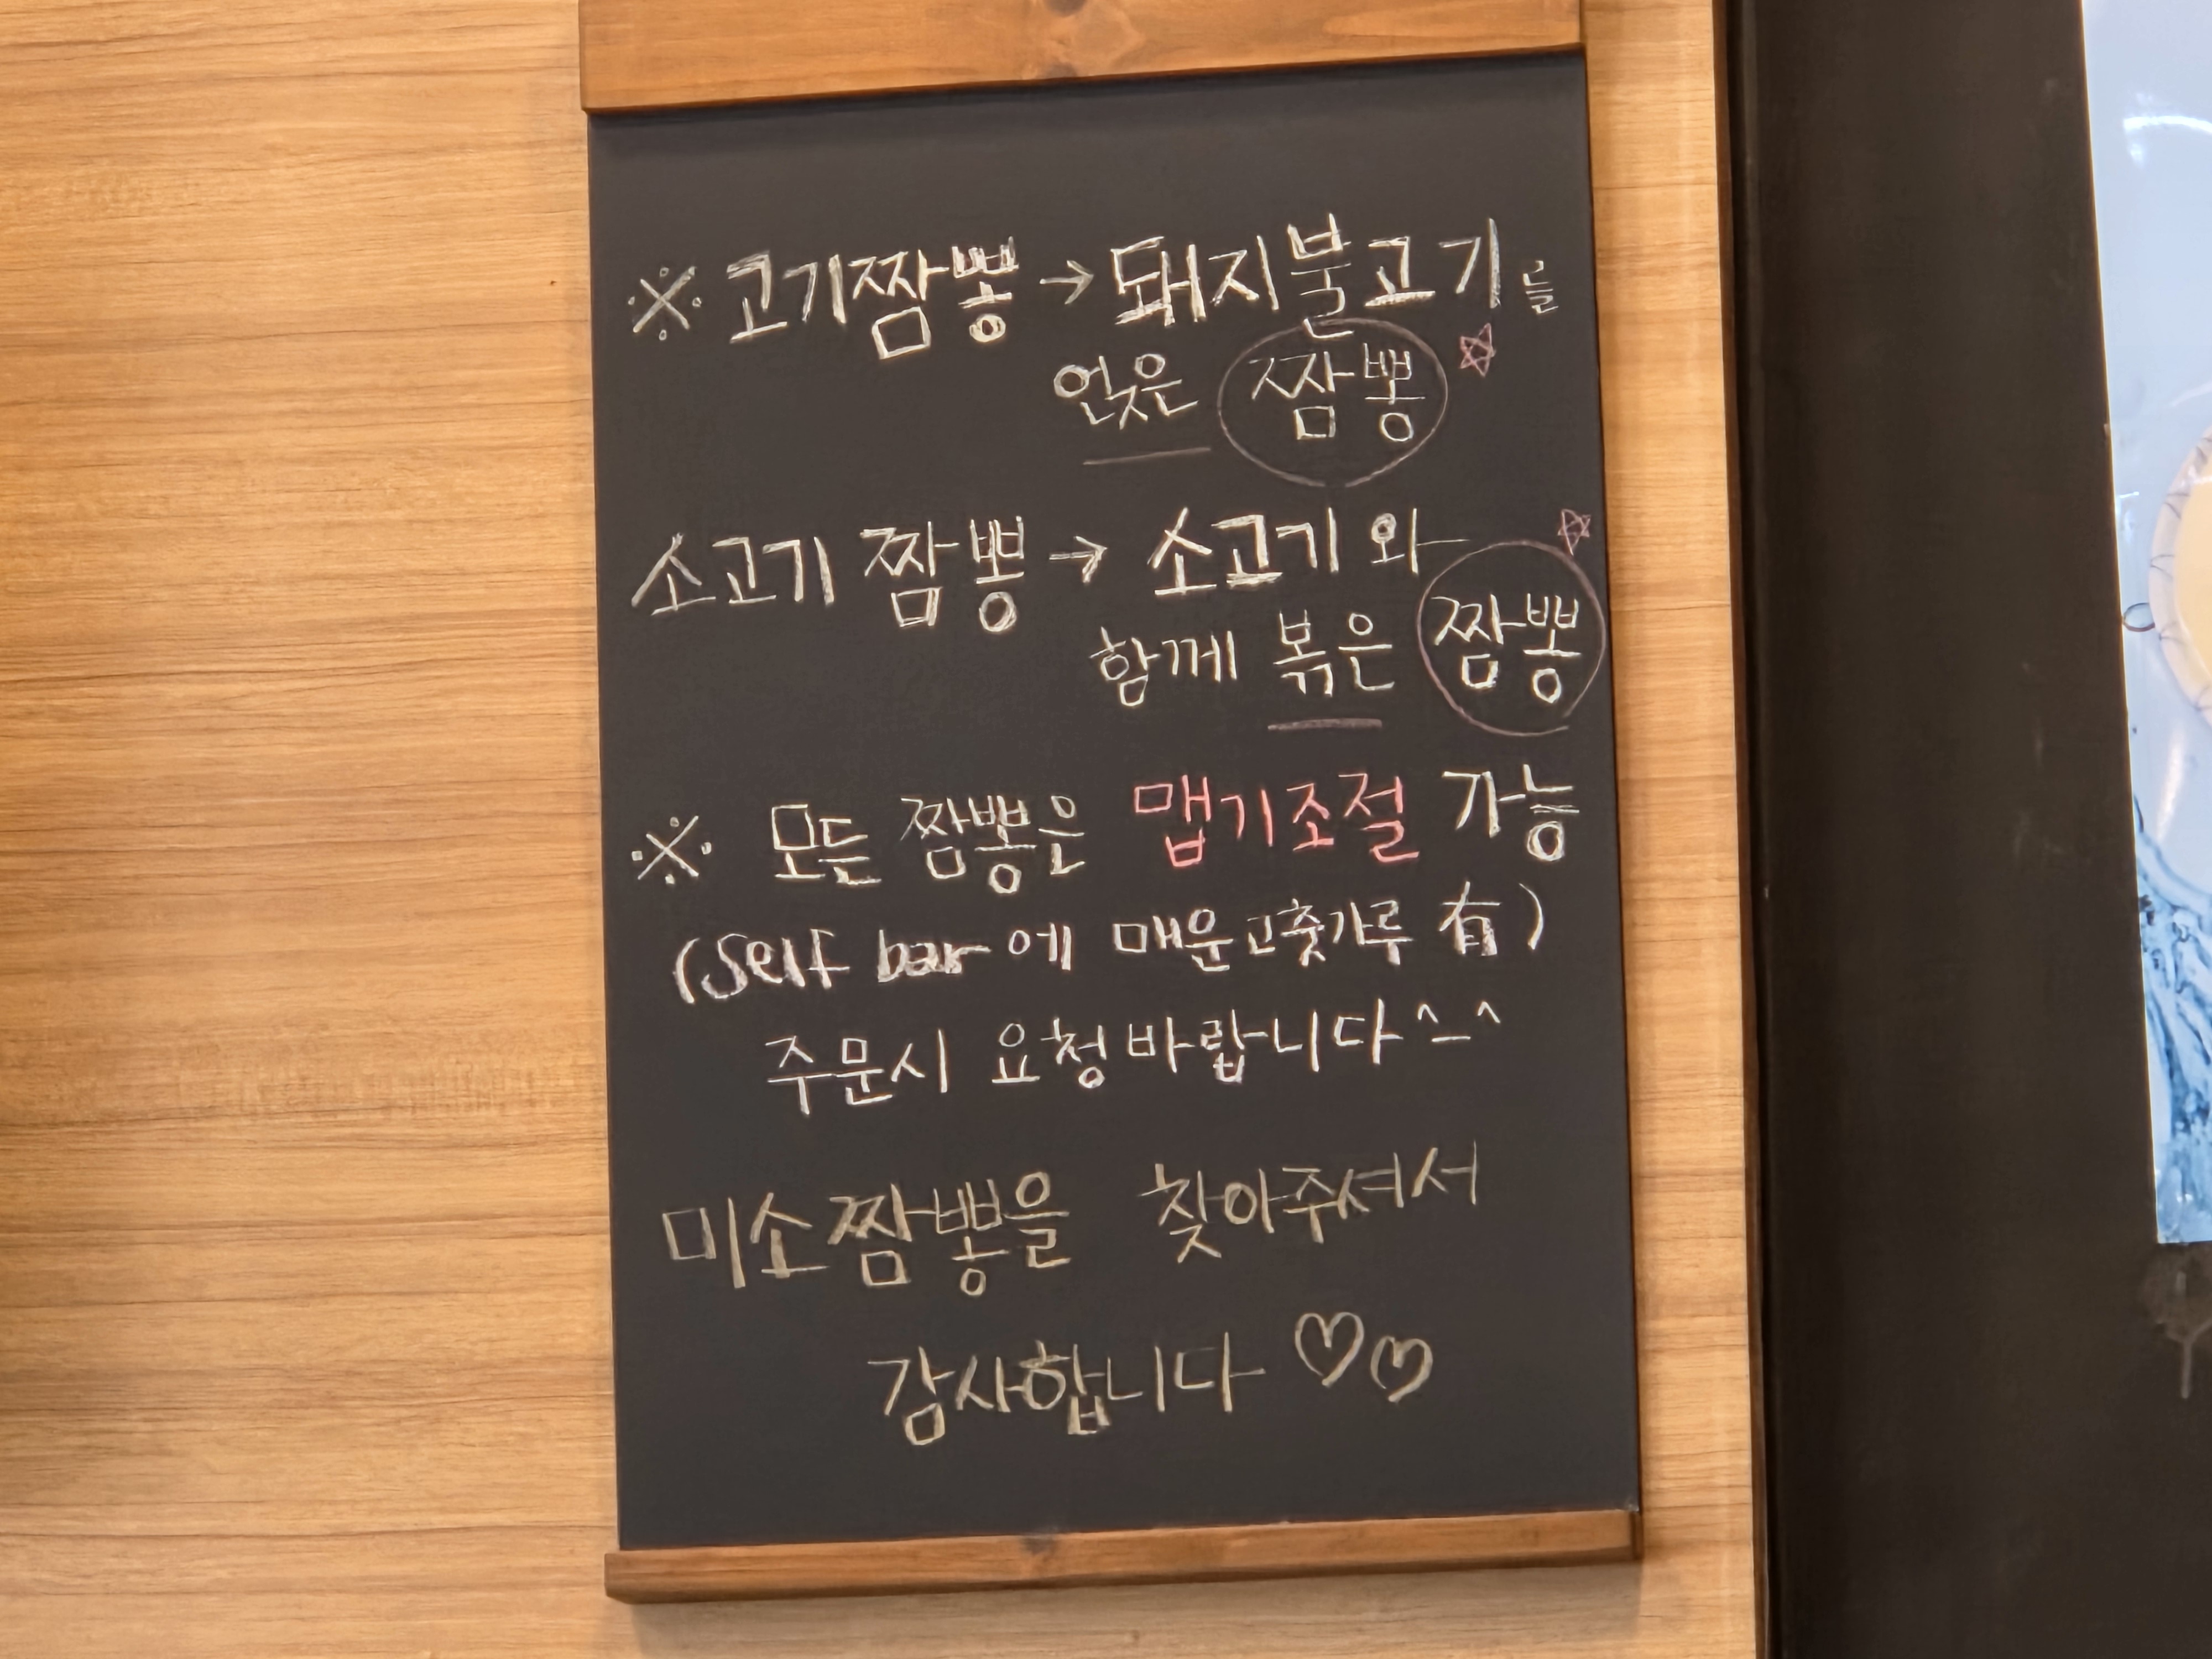 ※ 고기짬뽕 → 돼지불고기를
얹은 짬뽕 ☆
소고기 짬뽕 → 소고기와
함께 볶은 짬뽕 ☆
※ 모든 짬뽕은 맵기조절 가능
(Self bar에 매운고춧가루 有)
주문시 요청바랍니다^_^
미소짬뽕을 찾아주셔서
감사합니다 ♡♡